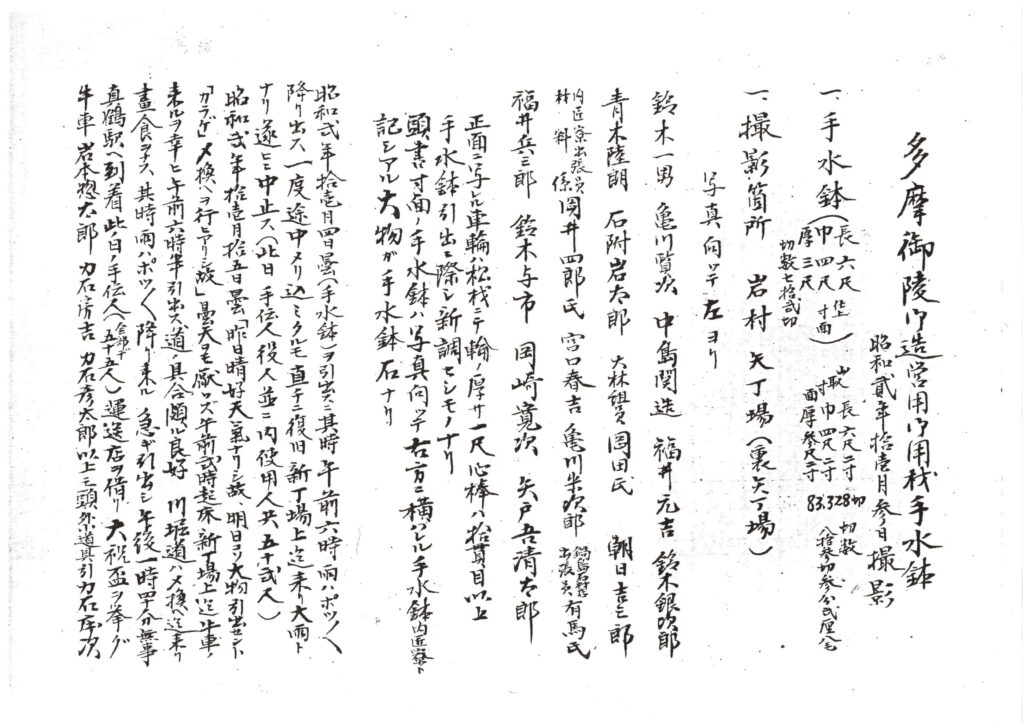 多摩御陵御造営用御用材手水鉢
昭和貳年拾壱月参日撮影
一、手水鉢(長 六尺
巾 四尺 寸面
厚 三尺
切数七拾貳切
山取 長六尺二寸
寸 巾四尺二寸
面 厚参尺二寸
83.328切 切数
八拾参切参分弐厘八毛
一、撮影箇所 岩村 矢丁場(裏矢丁場)
写真向ッテ左ヨリ
鈴木一男 亀川賢次 中島関造 福井元吉 鈴木銀次郎
青木陸朗 石附岩太郎 大林組員 岡田氏 朝日吉三郎
内匠寮出張員
材料係 岡井四郎氏 宮口春吉 亀川米次郎 鍋島石材店
出張員 有馬氏
福井兵三郎 鈴木与市 岡崎寛次 矢戸吾清太郎
正面ニ写シル車輪ハ松材ニテ輪ノ厚サ一尺心棒ハ拾貫目以上
手水鉢引出ニ際シ新調セシモノナリ
頭書寸面ノ手水鉢ハ写真向ッテ右方ニ横ハレル手水鉢内匠寮ト
記シアル大物ガ手水鉢石ナリ
昭和弐年拾壱月四日曇(手水鉢)ヲ引出ス其時午前六時雨ハポツ〱
降り出ス一度途中メリ込ミタルモ直チニ復旧新丁場上迄来り大雨ト
ナリ遂ニ中止ス(此日手伝人役人並ニ内使用人共五十弐人)
昭和弐年拾壱月拾五日曇「昨日晴好天気ナリシ故、明日ヨリ大物引出セント
「カラゲ」メ換ヘヲ行ヒタリシ故」曇天ヲモ厭ハズ午前弐時起床新丁場上迄牛車ノ
来ルヲ幸ヒ午前六時半引出ス道ノ具合頗ル良好 川堀道ハメ換ヘ迄来り
昼食ヲナス、其時雨ハポツ〱降り来ル 急ギ引出シ午後一時四十分無事
真鶴駅ヘ到着此日ノ手伝人(全部デ
五十五人)ノ運送店ヲ借リ大祝盃ヲ挙グ
牛車 岩本惣太郎 力石房吉 力石彦太郎以上三頭外小道具引力石床次